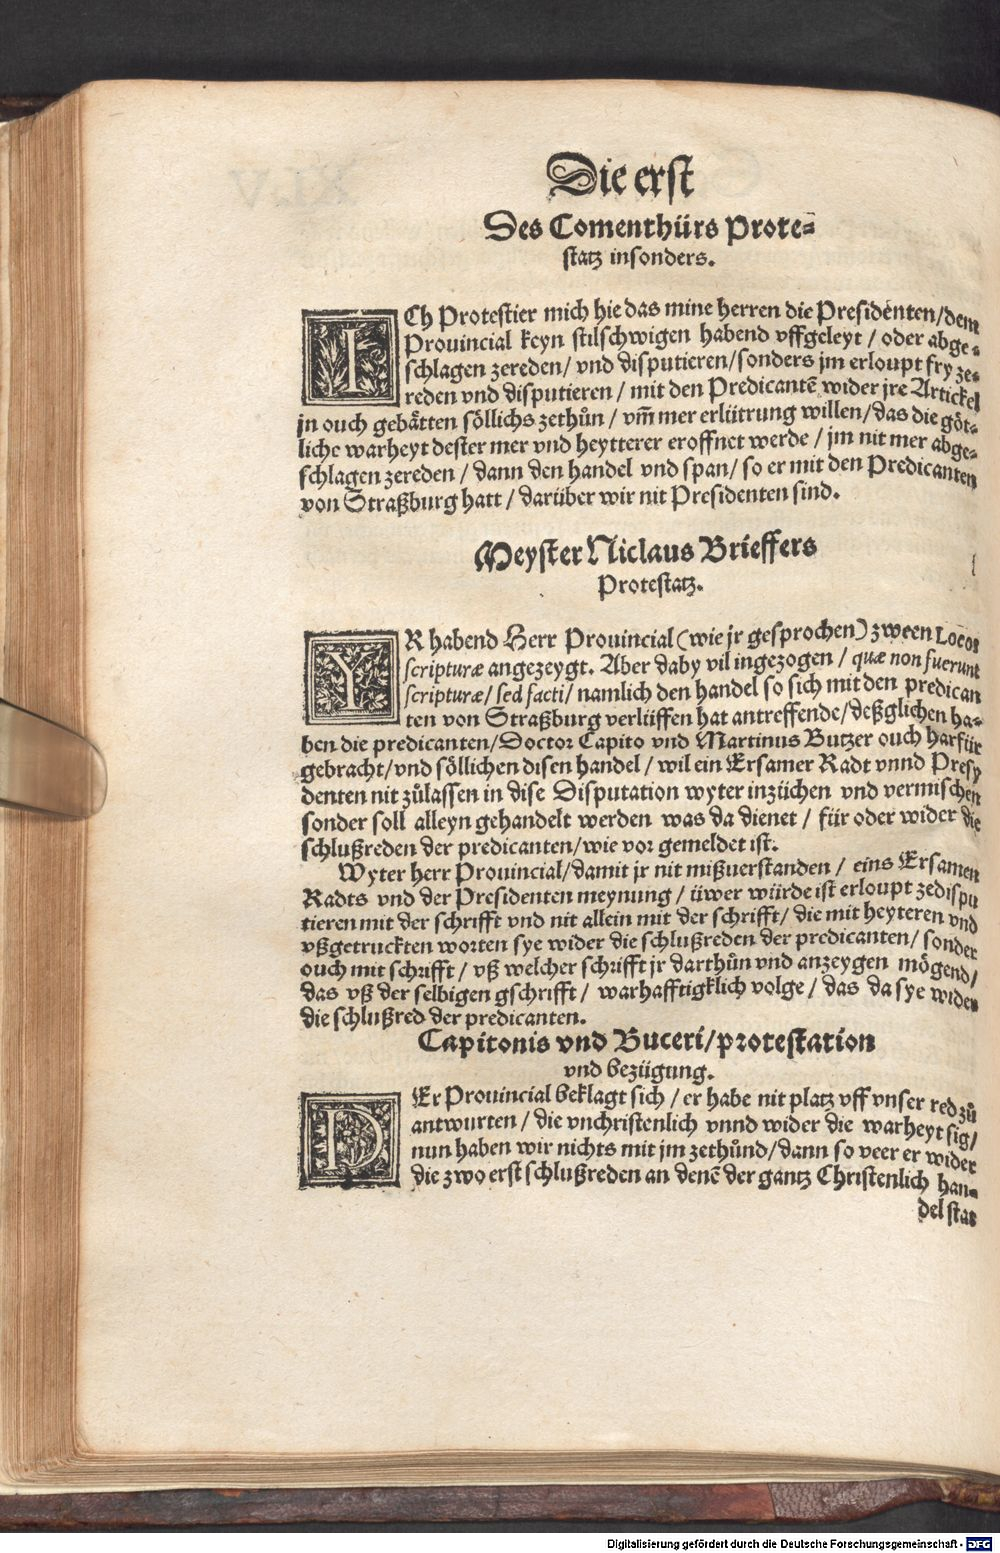 Die erst
Des Comenthürs Prote=
statz insonders.
ICh Protestier mich hie das mine herren die Presidenten/dem
Prouincial keyn stilschwigen habend vffgeleyt / oder abge=
schlagen zereden/ vnd disputieren/sonders jm erloupt fry ze=
reden vnd disputieren / mit den Predicantē wider jre Artickel
jn ouch gebätten söllichs zethůn / vm̄ mer erlütrung willen/das die göt=
liche warheyt dester mer vnd heytterer eroffnet werde / jm nit mer abge=
schlagen zereden / dann den handel vnd span/ so er mit den Predicanten
von Straßburg hatt / darüber wir nit Presidenten sind.
Meyster Niclaus Brieffers
Protestatz.
YR habend Herr Prouincial (wie jr gesprochen) zween Locos
scripturæ angezeygt. Aber daby vil ingezogen / quæ non fuerunt
scripturæ/ sed facti/ namlich den handel so sich mit den predican
ten von Straßburg verlüffen hat antreffende/deßglichen ha=
ben die predicanten/Doctor Capito vnd Martinus Butzer ouch harfür
gebracht/vnd söllichen disen handel / wil ein Ersamer Radt vnnd Presy
denten nit zůlassen in dise Disputation wyter inzüchen vnd vermischen
sonder soll alleyn gehandelt werden was da dienet / für oder wider die
schlußreden der predicanten/wie vor gemeldet ist.
Wyter herr Prouincial/damit jr nit mißuerstanden / eins Ersamen
Radts vnd der Presidenten meynung / üwer würde ist erloupt zedispu
tieren mit der schrifft vnd nit allein mit der schrifft/ die mit heyteren vnd
vßgetruckten worten sye wider die schlußreden der predicanten/ sonder
ouch mit schrifft / vß welcher schrifft jr darthůn vnd anzeygen mögend/
das vß der selbigen gschrifft / warhafftigklich volge / das da sye wider
die schlußred der predicanten.
Capitonis vnd Buceri/protestation
vnd bezügung.
DEr Prouincial beklagt sich / er habe nit platz vff vnser red zů
antwurten / die vnchristenlich vnnd wider die warheyt sig/
nun haben wir nichts mit jm zethůnd/dann so veer er wider
die zwo erst schlußreden an denē der gantz Christenlich han=
del stat
Digitalisierung gefördert durch die Deutsche Forschungsgemeinschaft - DFG